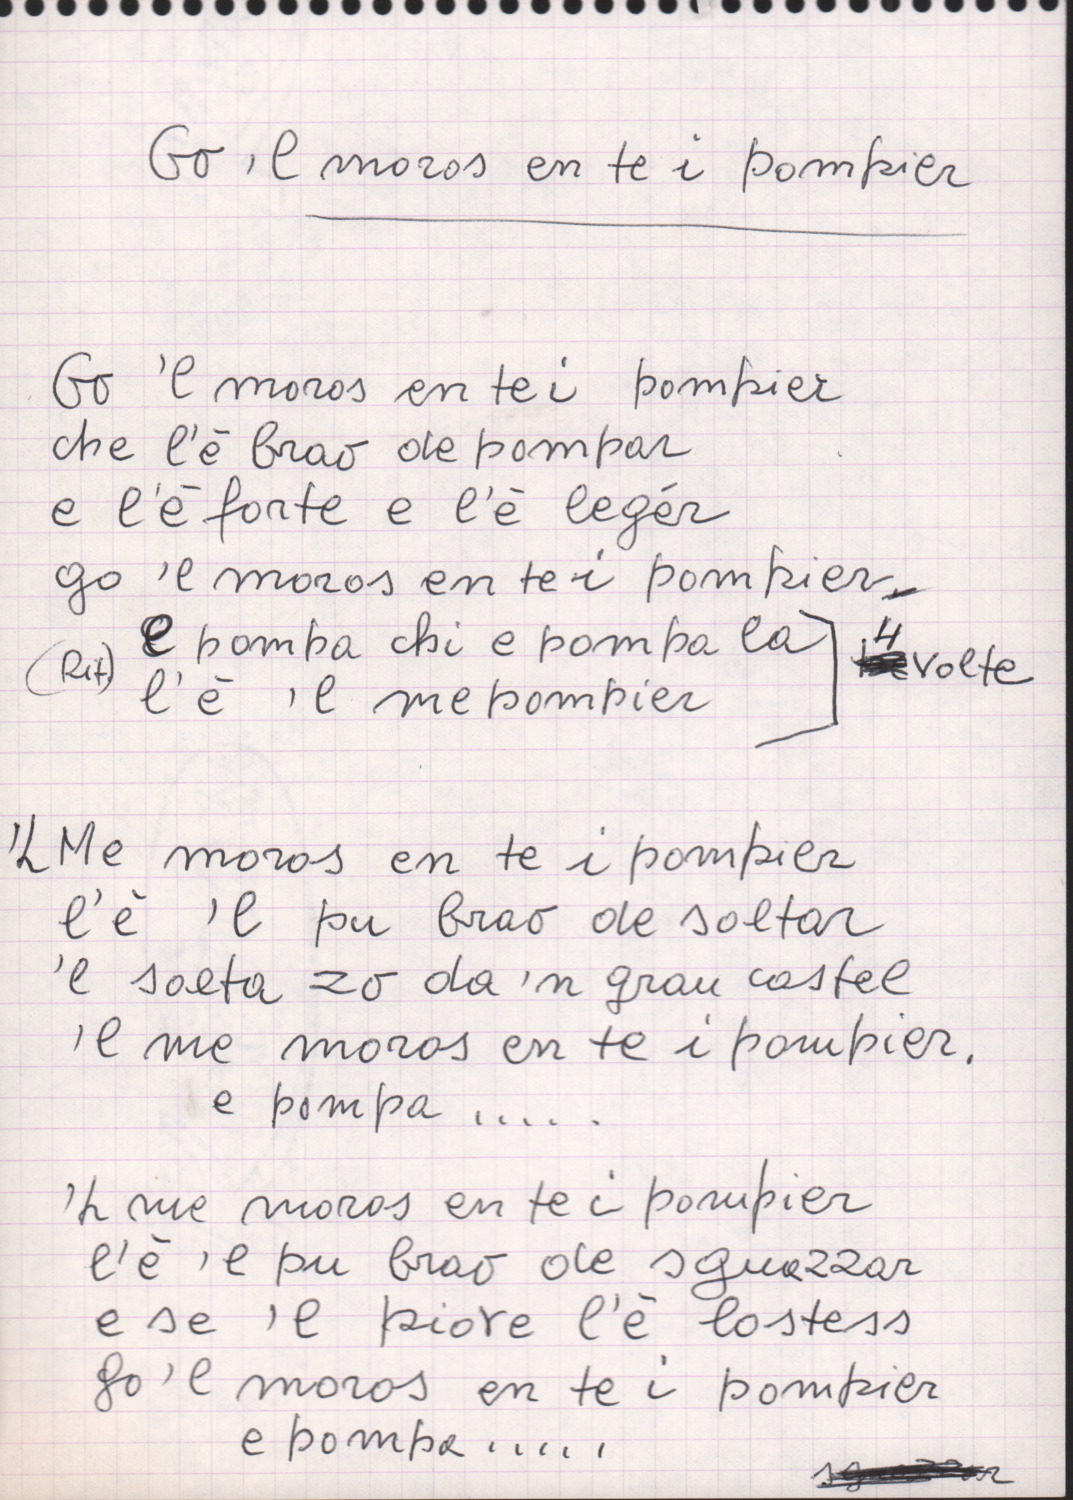 Go 'l moros en te i pompier
Go 'l moros en te i pompier
che l'è brao de pompar
e l'è forte e l'è legér
go 'l moros en te i pompier
(Rit) e pompa chi e pompa la 4 volte
l'è 'l me pompier
'L Me moros en te i pompier
l'è 'l pu brao de soltar
'l solta zo da 'n gran castel
'l me moros en te i pompier.
e pompa .....
'L me moros en te i pompier
l'è 'l pu brao de sguazzar
e se 'l piove l'è lostess
go 'l moros en te i pompier
e pompa .....